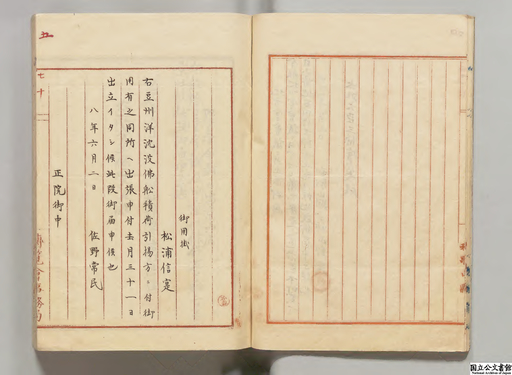 御用掛
松浦信寔
右豆州洋沈没佛舩積荷引揚方ニ付御
用有之同所ヘ出張申付去月三十一日
出立イタシ候此段御届申候也
八年六月二日
佐野常民
正院御中
五
七十
国立公文書館
National Archives of Japan